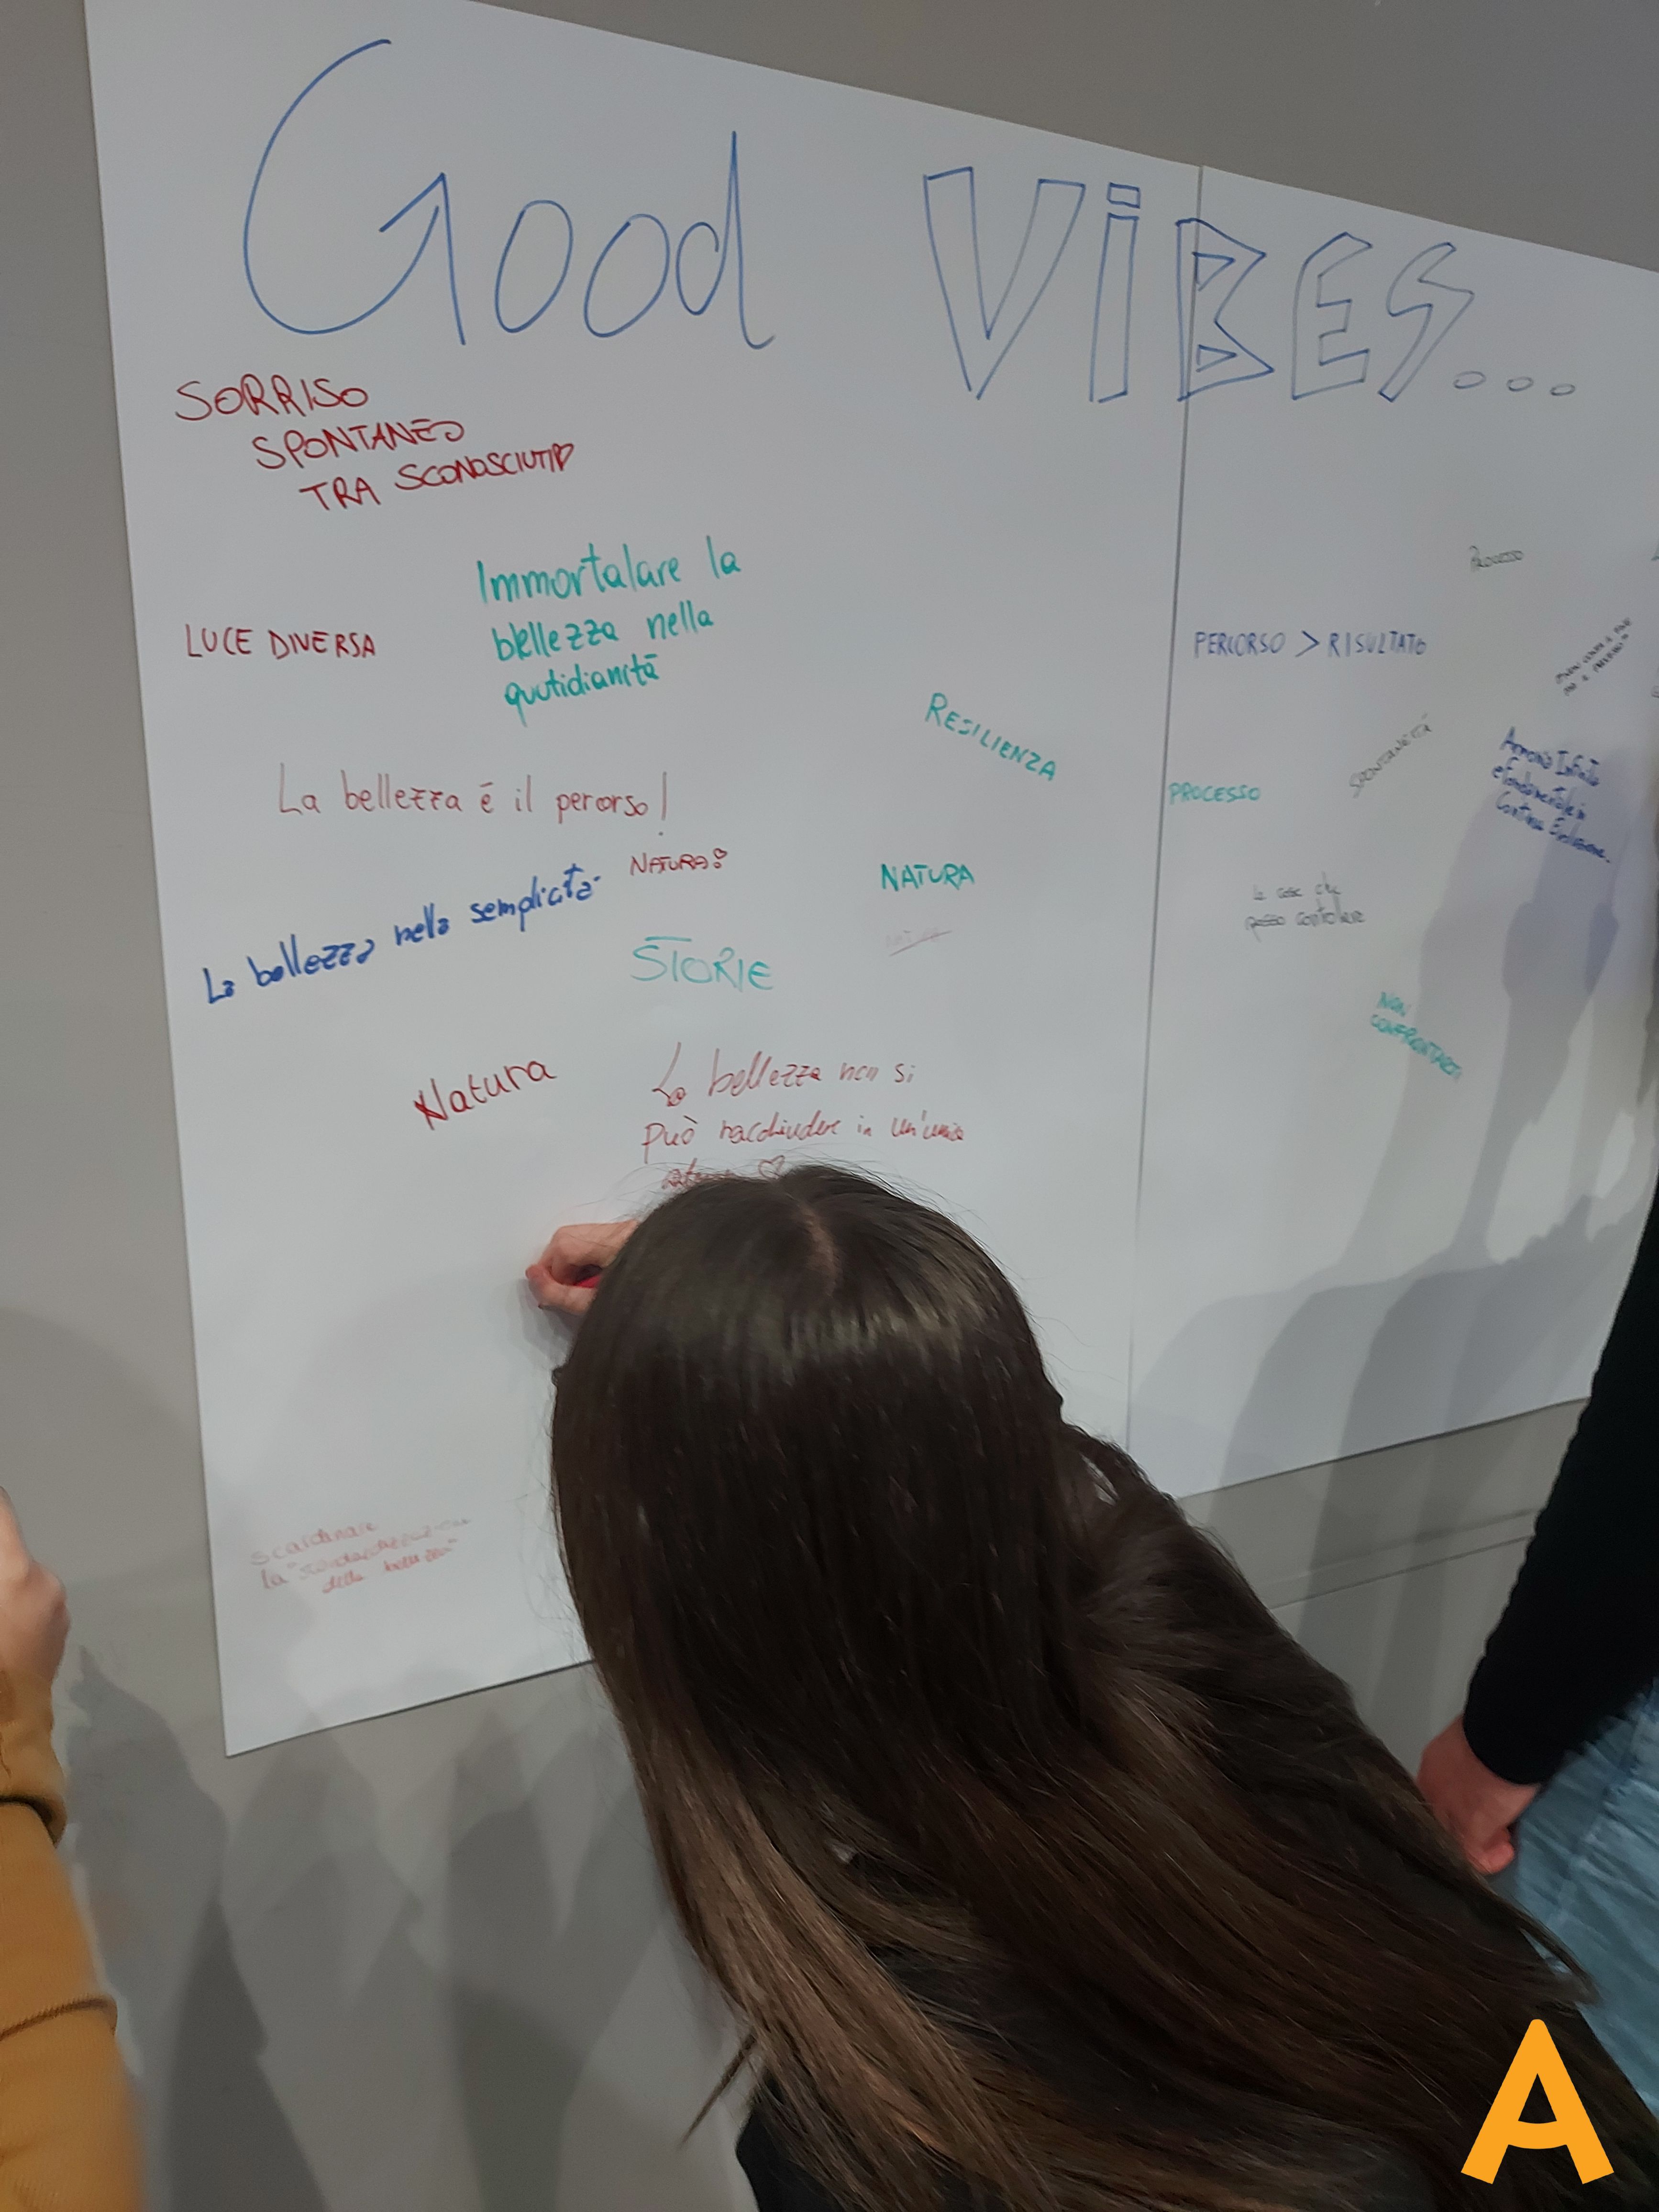 Good ViBES...
SORRISO
SPONTANEO
TRA SCONOSCIUTI
Immortalare la
bellezza nella
quotidianità
LUCE DIVERSA
RESILIENZA
La bellezza é il percorso!
NATURA
NATURA
La bellezza nella semplicità
STORIE
Natura
La bellezza non si
può racchiudere in un'unica
scardinare
la "standardizzazione
della bellezza"
Processo
PERCORSO > RISULTATO
SPONTANEITÀ
PROCESSO
Armonia Infinita
e fondamentale in
Continua Evoluzione.
le cose che
posso controllare
NON
CONFRONTARTI
A